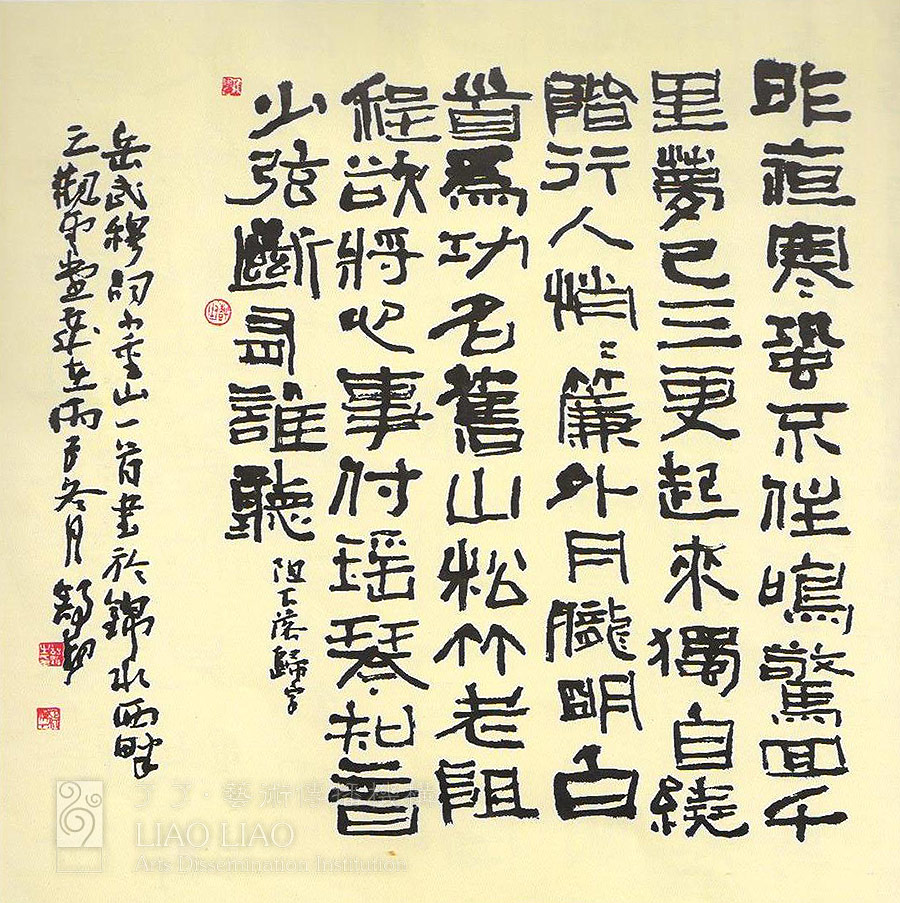 昨夜寒蛩不住鳴驚回千
里夢已三更起來獨自繞
階行人悄〻簾外月朧明白
首為功名舊山松竹老阻
程欲將心事付瑤琴知音
少弦斷有誰聽
阻下落歸字
岳武穆詞小重山一首書於錦水西畔
之觀歲在丙子冬月
了了·藝術傳播機構
LIAO LIAO
Arts Dissemination Institution